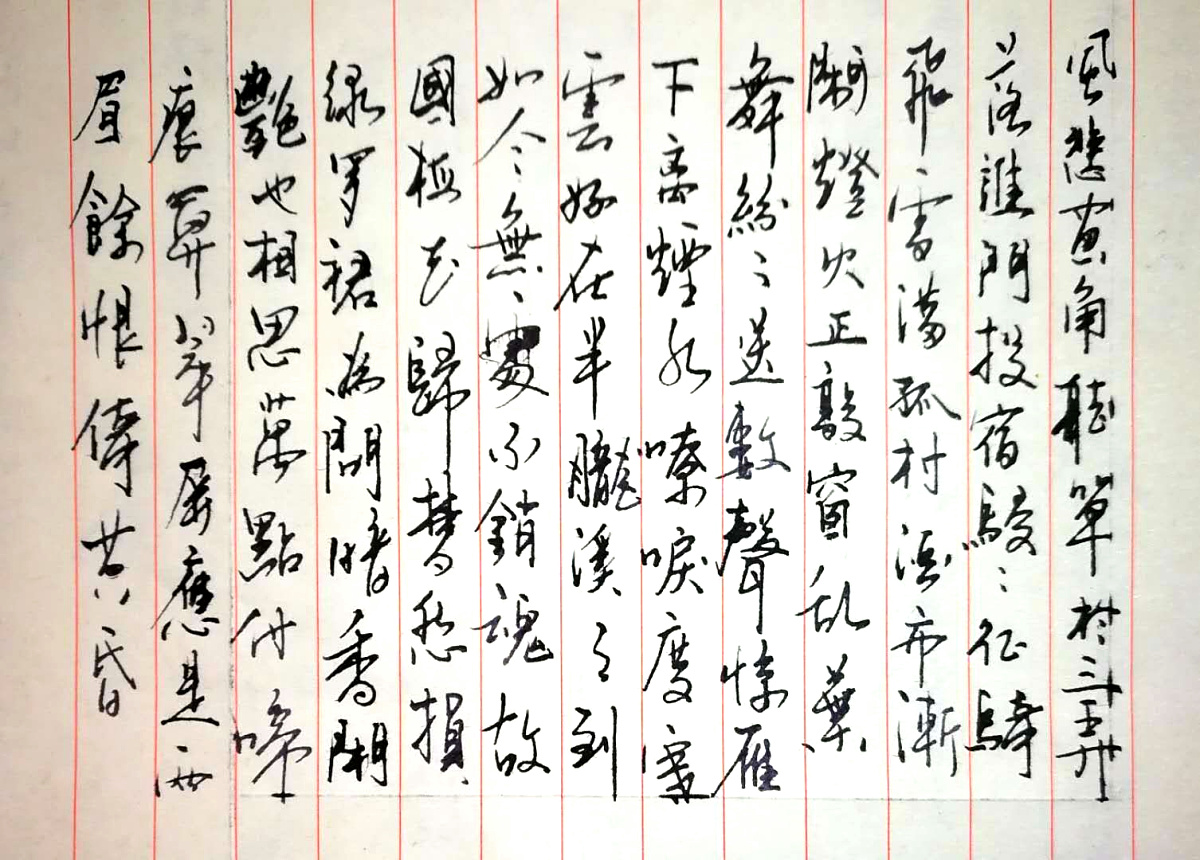 風悲畫角聽單于三弄
落譙門投宿駸〻征騎
飛雪滿孤村酒市漸
闌燈火正敲窗乱葉
舞紛〻送數聲惊雁
下离煙水嘹唳度寒
雲好在半朧溪月到
如今無處不銷魂故
國梅花歸夢愁損
綠罗裙為問暗香閑
艷也相思萬點付啼
痕算翠屏應是兩
眉餘恨倚黄昏